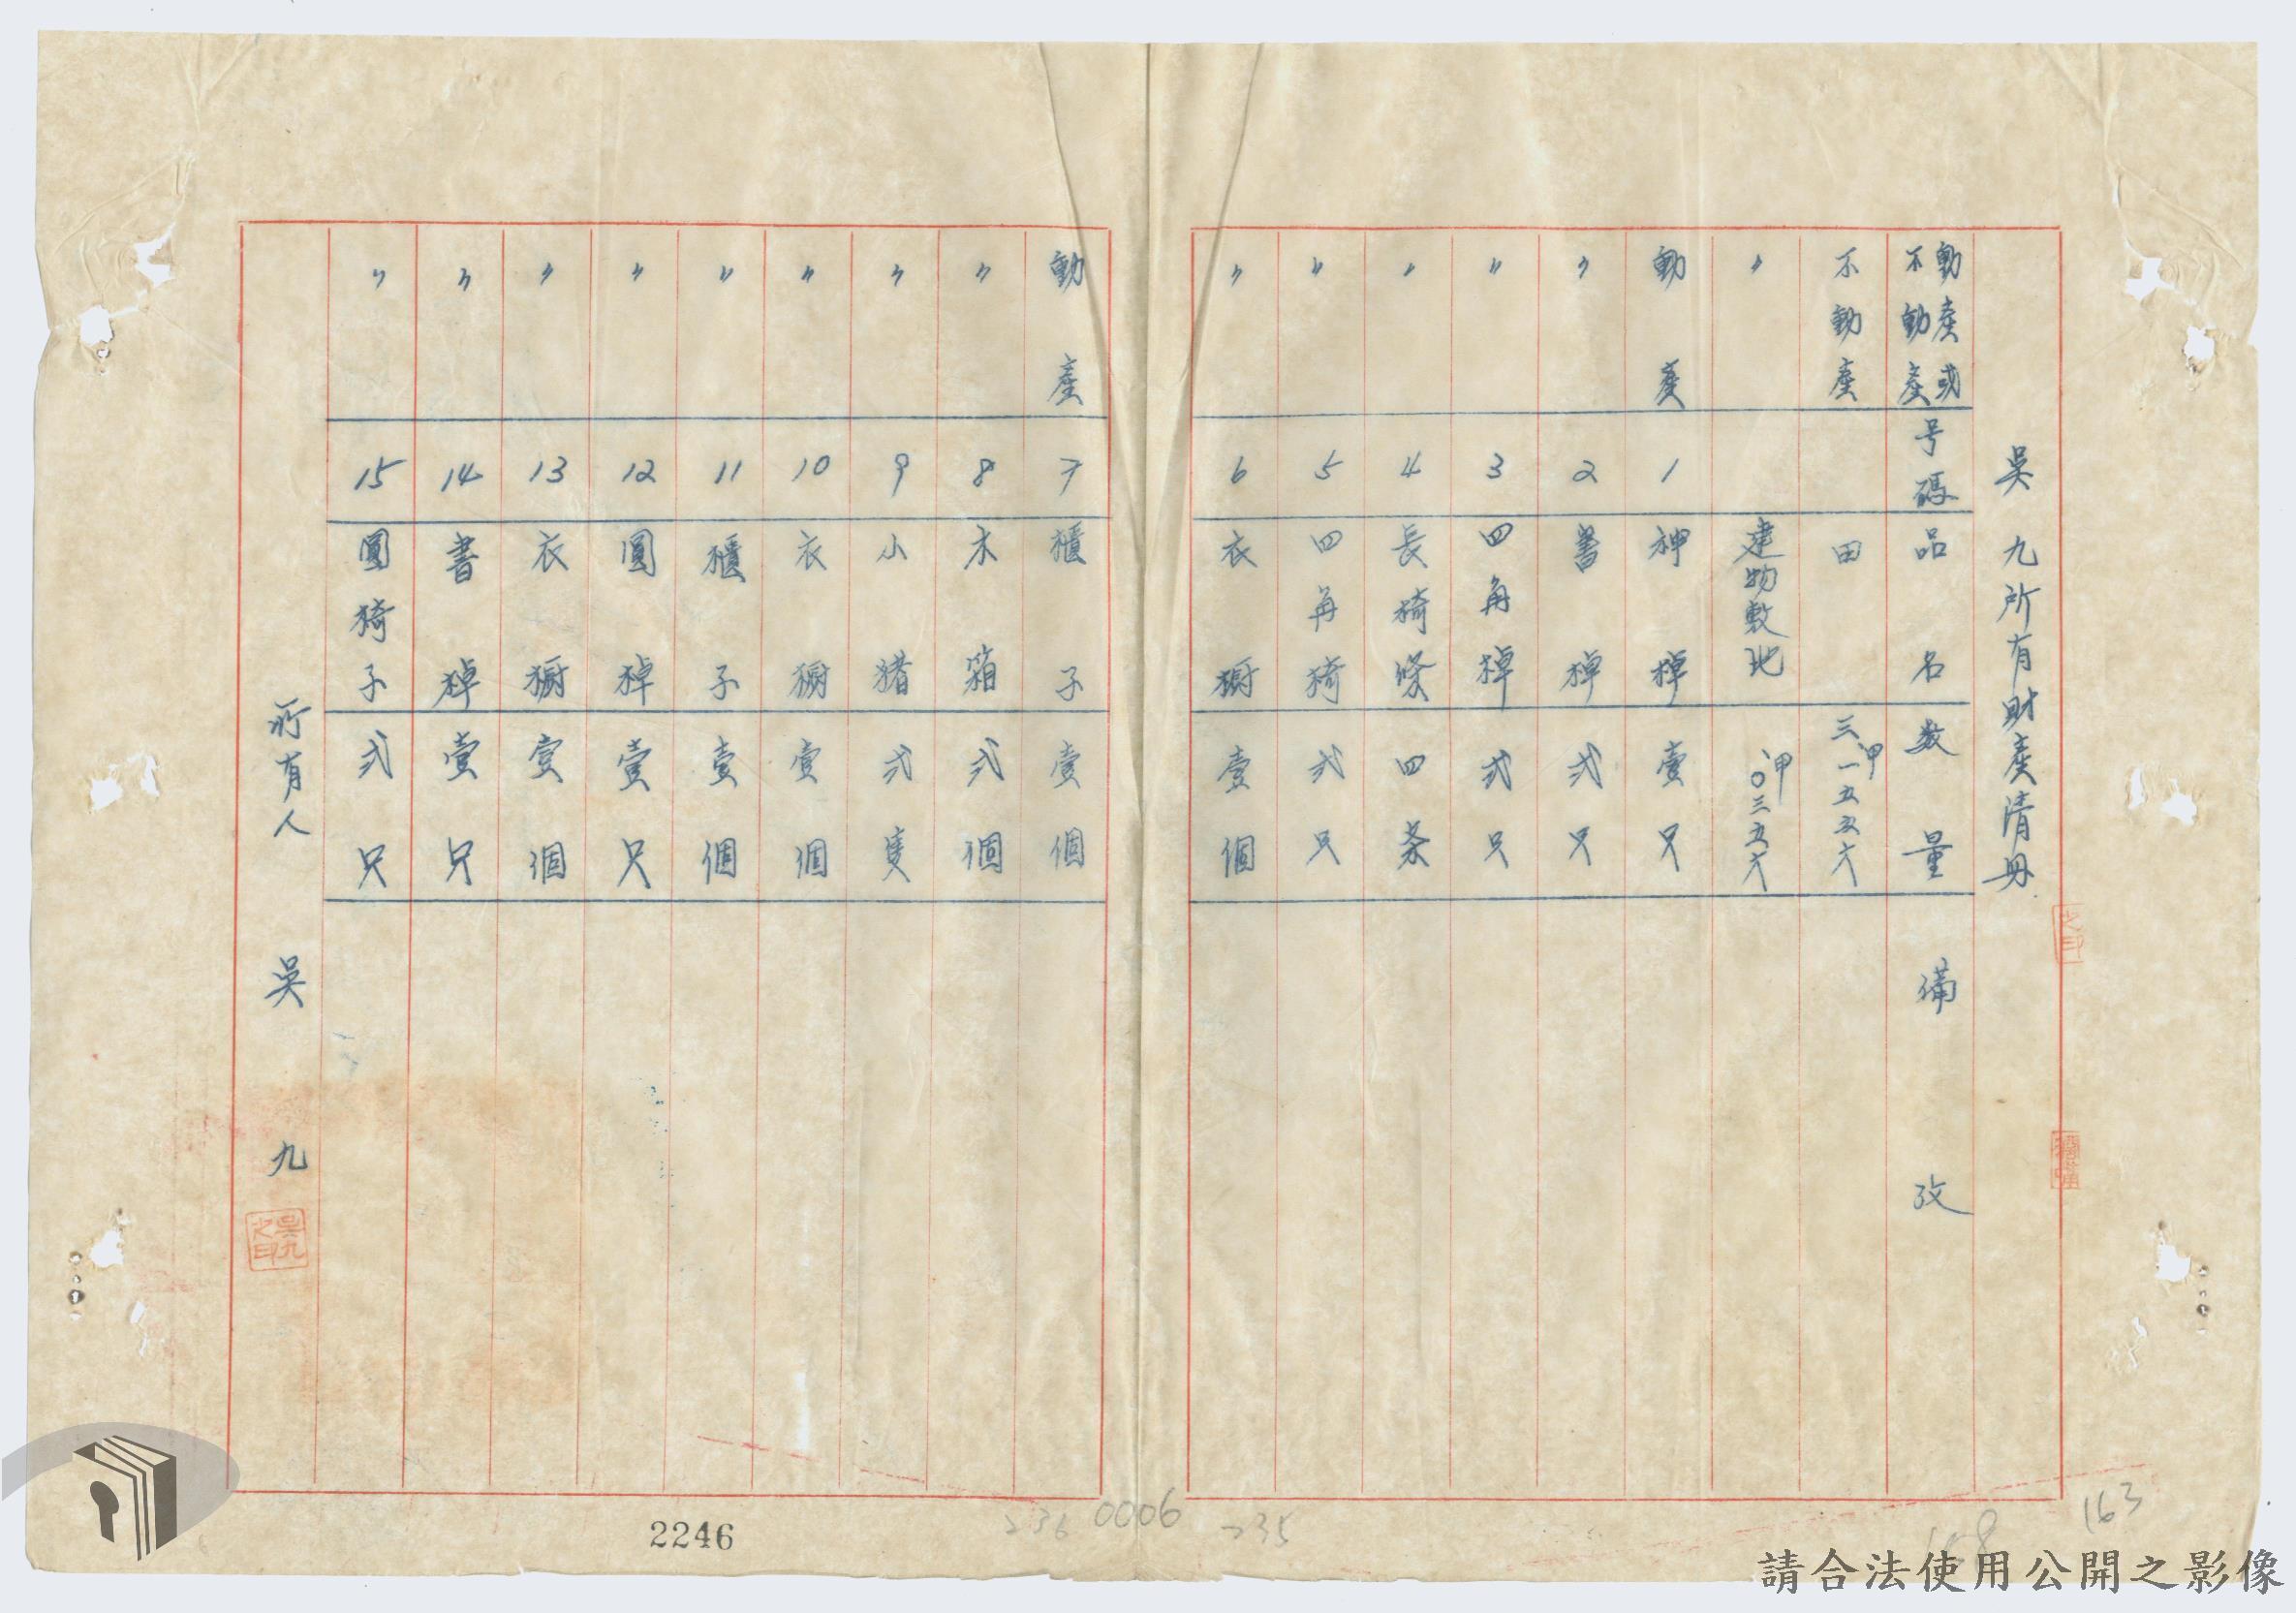 吳九所有財產清册
動產或不動產 号碼 品名 数量 備攷
不動產 田 三甲一五五六
〃 建物敷地 、甲〇三五六
動產 1 神棹 壹只
〃 2 書棹 弍只
〃 3 四角棹 弍只
〃 4 長猗條 四条
〃 5 四角猗 弍只
〃 6 衣橱 壹個
動產 7 櫃子 壹個
〃 8 木箱 弍個
〃 9 小猪 弍隻
〃 10 衣橱 壹個
〃 11 櫃子 壹個
〃 12 圓棹 壹只
〃 13 衣橱 壹個
〃 14 書棹 壹只
〃 15 圓猗子 弍只
所有人 吳九
吳九之印
之印
2246
236 0006 235
163
168
請合法使用公開之影像